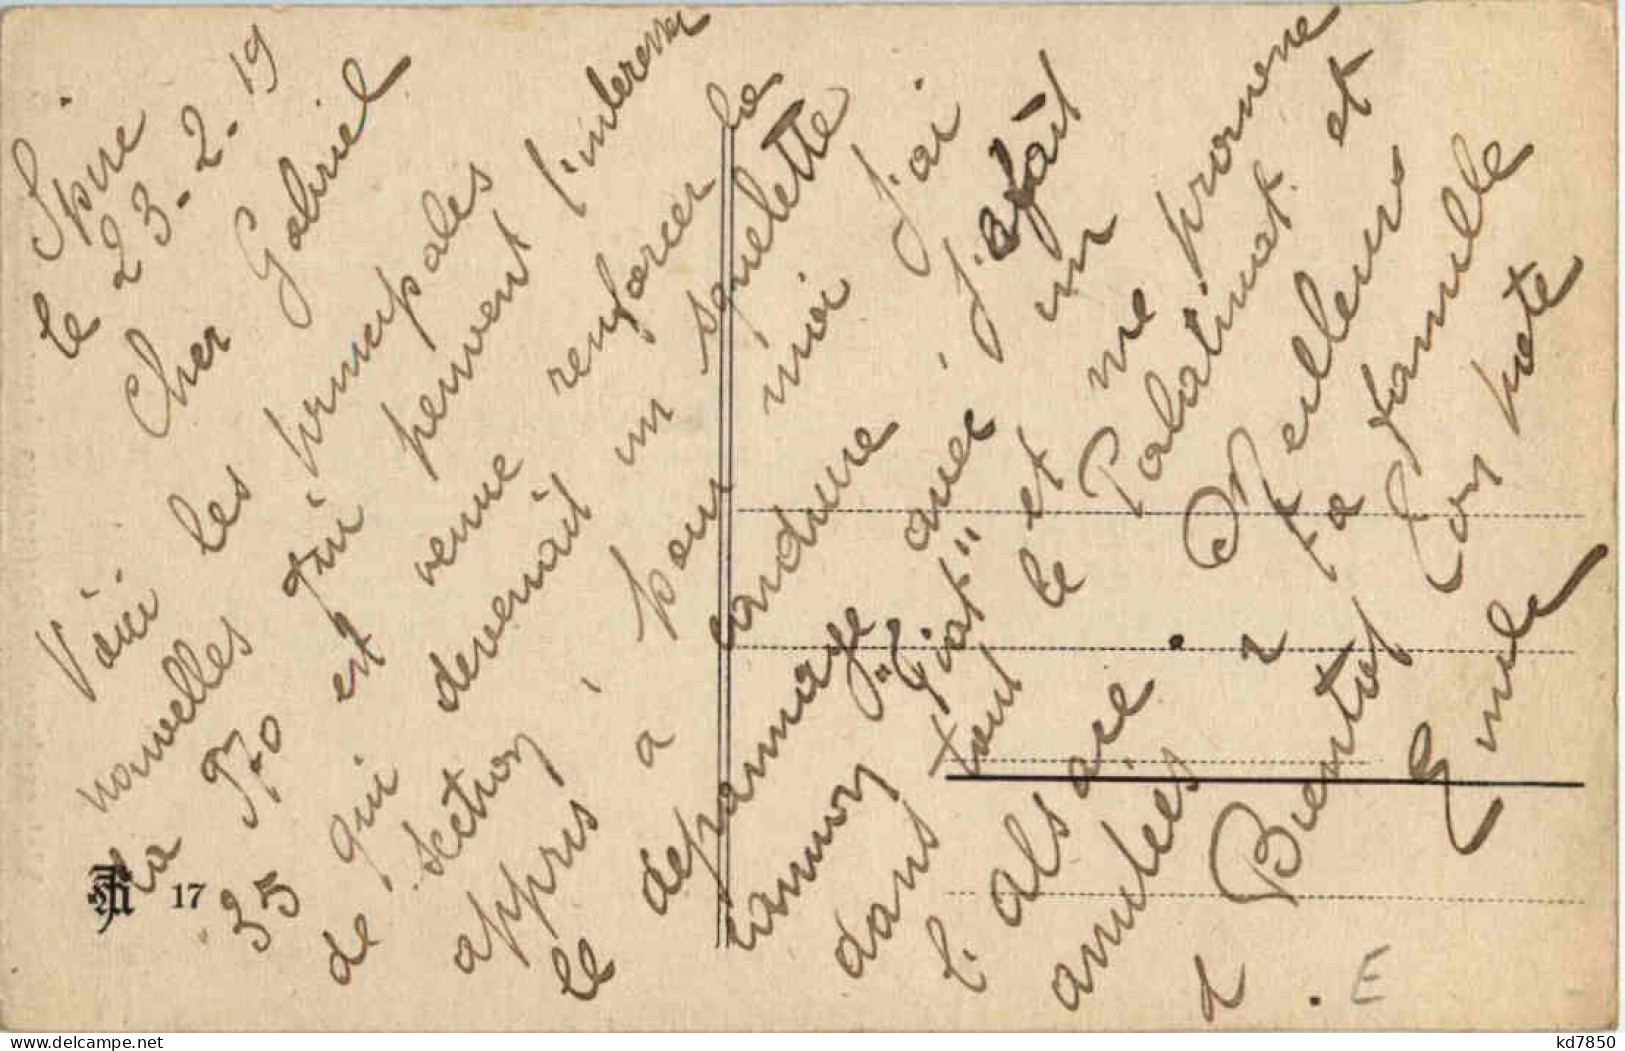 Spire
le 23-2-19
Cher Gabriel
Voici les principales
nouvelles qui peuvent l'interesser
la 970 est venue renforcer la
35 qui devenait un squelette
de section, pour moi j'ai
appris à conduire, j'ai fait
le depannage avec un
camion "Fiat" et me promene
dans tout le Palatinat et
l'alsace. Meilleurs
amitiés à ta famille
à Bientot Ton pote
Emile
17
E
kd7850